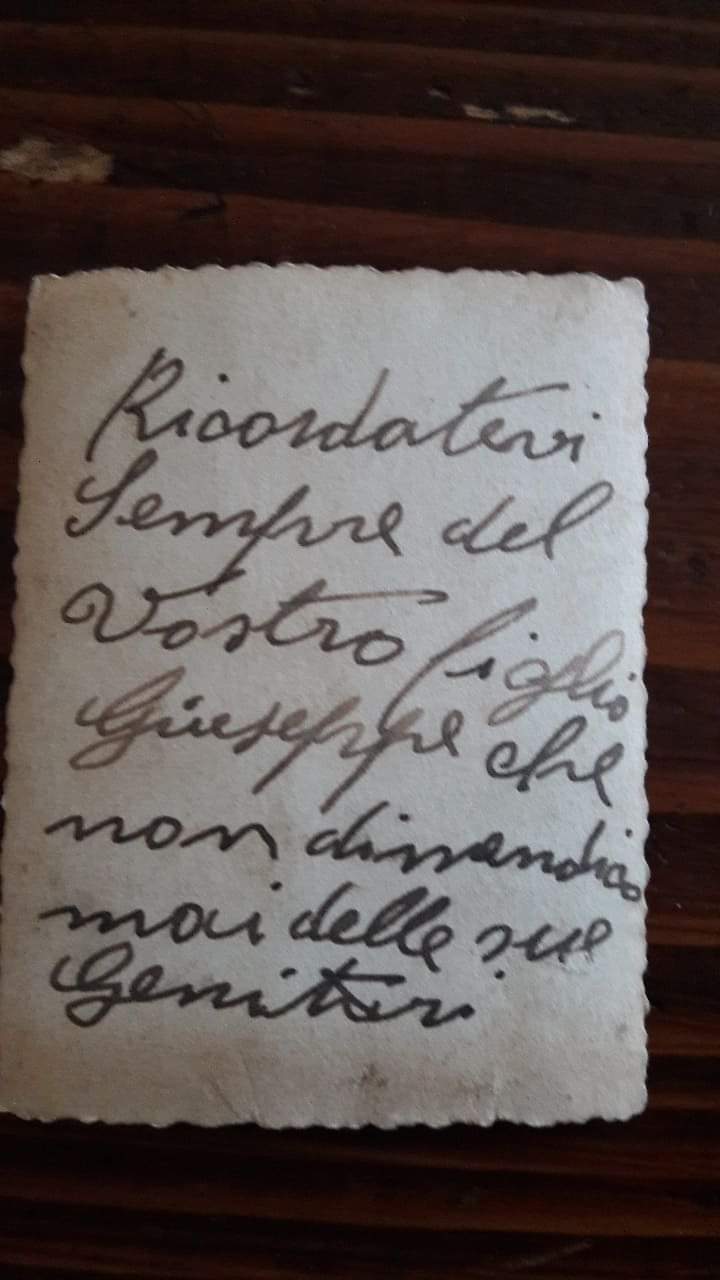 Ricordatevi
Sempre del
Vostro figlio
Giuseppe che
non dimendico
mai delle sue
Genitori